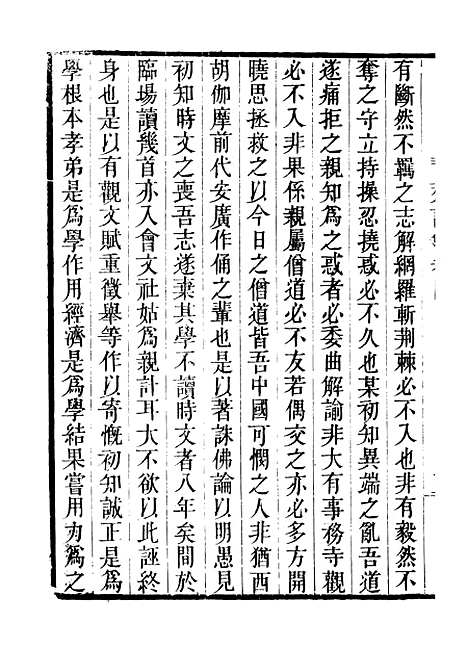 有斷然不羈之志解網羅斬荆棘必不入也非有毅然不
奪之守立持操忍撓惑必不久也某初知異端之亂吾道
遂痛拒之親知爲之惑者必委曲解諭非大有事務寺觀
必不入非果係親屬僧道必不友若偶交之亦必多方開
曉思拯救之以今日之僧道皆吾中國可憫之人非猶西
胡伽摩前代安廣作俑之輩也是以著誅佛論以明愚見
初知時文之喪吾志遂棄其學不讀時文者八年矣間於
臨場讀幾首亦入會文社姑爲親計耳大不欲以此誣終
身也是以有觀文賦重徵舉等作以寄慨初知誠正是爲
學根本孝弟是爲學作用經濟是爲學結果嘗用力爲之